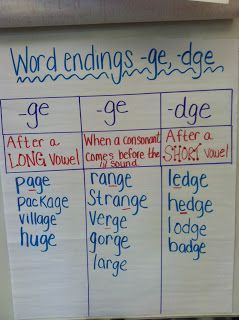 Word endings -ge, -dge
-ge -ge -dge
After a When a consonant After a
LONG vowel comes before the SHORT vowel
/j/ sound
page range ledge
package Strange hedge
village Verge lodge
huge gorge badge
large